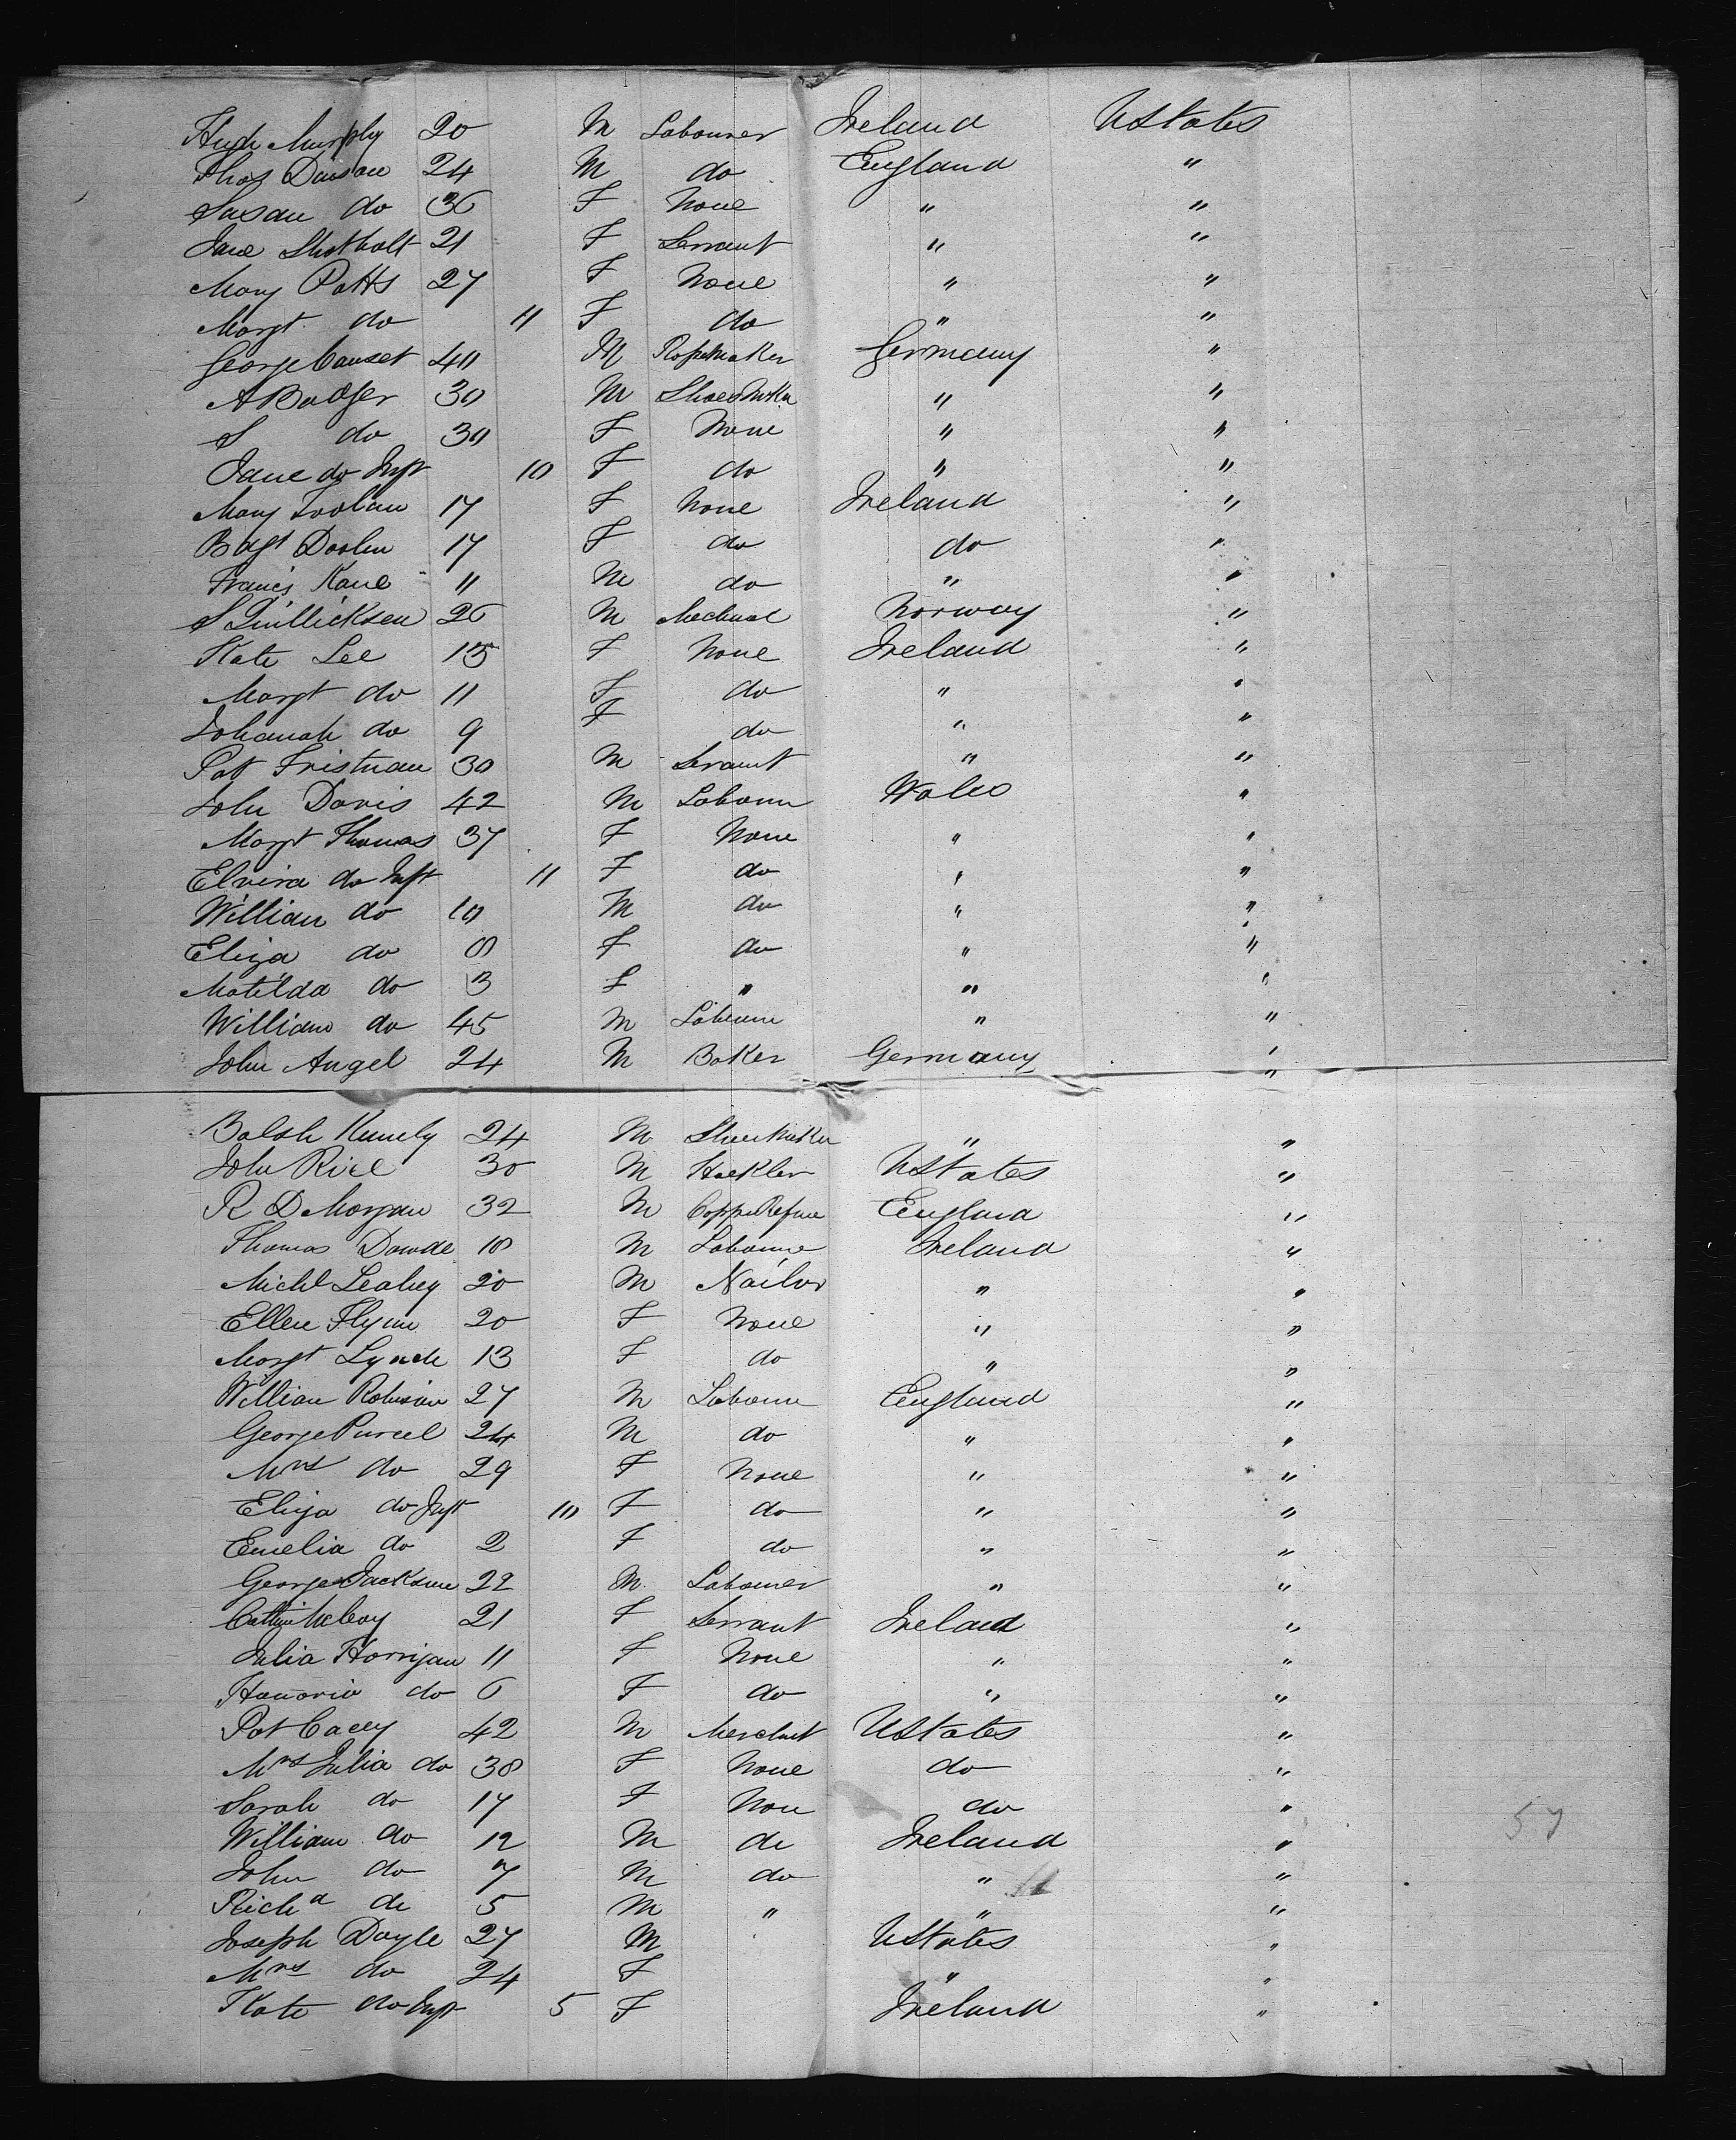 Hugh Murphy 20 M Labourer Ireland UStates
Thos Dawson 24 M do England "
Susan do 36 F None " "
Jane Shotbolt 21 F Servant " "
Mary Potts 27 F None " "
Margt do 11 F do " "
George 40 M Ropemaker Germany "
A Badger 30 M ShoeMkr " "
S do 30 F None " "
Jane do Inft 10 F do " "
Mary Toolan 17 F None Ireland "
Bdgt Doolen 17 F do do "
Francis Kane 11 M do " "
S 26 M Norway "
Kate Lee 13 F None Ireland "
Margt do 11 F do " "
Johanah do 9 F do " "
Pat 30 M Servant " "
John Davis 42 M Labourer Wales "
Margt Thomas 37 F None " "
Elvira do Inft 11 F do " "
William do 10 M do " "
Eliza do 8 F do " "
Matilda do 3 F " " "
William do 45 M Labourer " "
John Angel 24 M Baker Germany "
"
24 M ShoeMaker " "
John Rice 30 M Hackler UStates "
R D Morgan 32 M CopperRefiner England "
Thomas Dowde 18 M Labourer Ireland "
Michl Leahey 20 M Nailor " "
Ellen Flynn 20 F None " "
Margt Lynch 13 F do " "
William Robinson 27 M Labourer England "
George Purcel 24 M do " "
Mrs do 29 F None " "
Eliza do Inft 10 F do " "
Emelia do 2 F do " "
George Jackson 22 M Labourer " "
McCoy 21 F Servant Ireland "
Julia Horrigan 11 F None " "
Hanoria do 6 F do " "
Pat Cacey 42 M Merchnt UStates "
Mrs Julia do 38 F None do "
Sarah do 17 F Non do "
William do 12 M do Ireland "
John do 7 M do " "
Richd do 5 M " " "
Joseph Doyle 27 M UStates "
Mrs do 24 F " "
Kate do Inft 5 F Ireland "
57